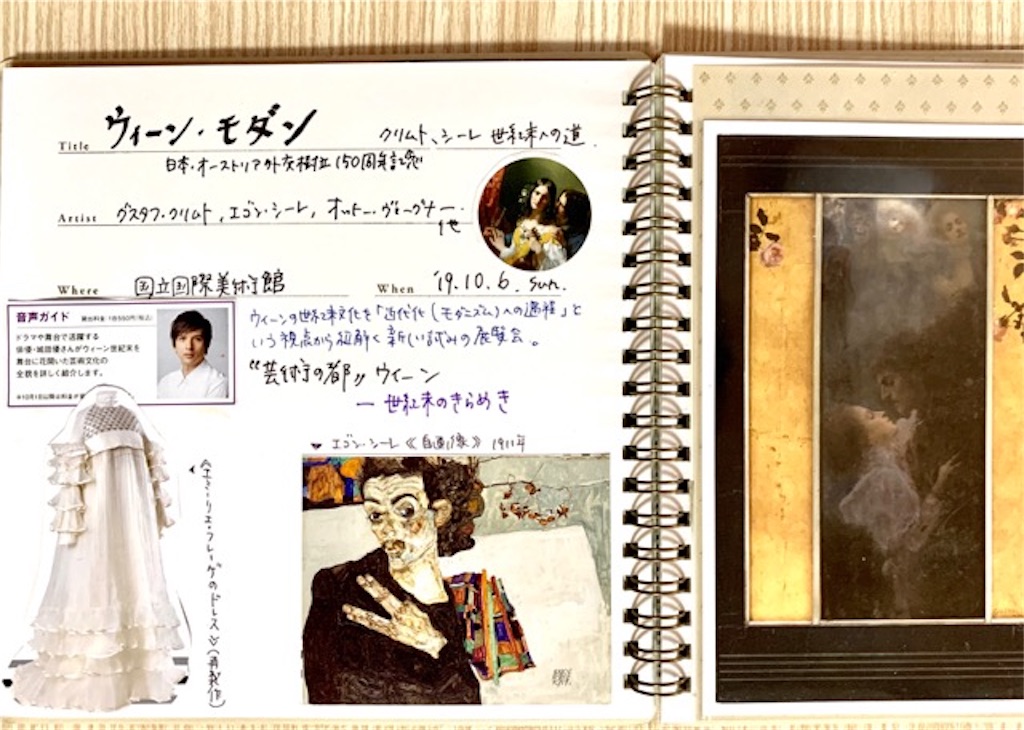 Title ウィーン・モダン クリムト、シーレ 世紀末への道
日本・オーストリア外交樹立150周年記念
Artist グスタフ・クリムト, エゴン・シーレ, オットー・ヴァーグナー.
他
Where 国立国際美術館 When '19.10.6. sun.
音声ガイド 貸出料金 1台550円(税込)
ドラマや舞台で活躍する
俳優・城田優さんがウィーン世紀末を
舞台に花開いた芸術文化の
全貌を詳しく紹介します。
※10月1日以降は料金が
ウィーンの世紀末文化を「近代化(モダニズム)への過程」と
いう視点から紐解く新しい試みの展覧会。
“芸術の都” ウィーン
— 世紀末のきらめき
エゴン・シーレ《自画像》1911年
《エミーリエ・フレーゲのドレス》(再製作)